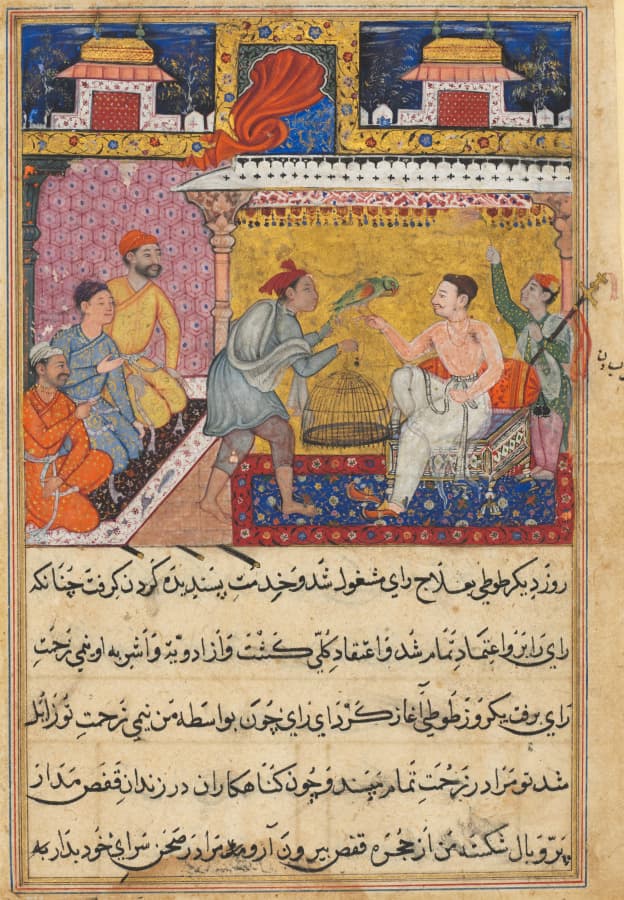 روز دیگر طوطی بعلاج رای مشغول شد و خدمت پسندیده کردن گرفت چنانکه
رای را برو اعتماد تمام شد و اعتقاد کلی گشت و از ادویه و اشربه او نیمی زحمت
رای برفت یکروز طوطی آغاز کرد ای رای چون بواسطه من نیمی زحمت تو زائل
شد تو مرا در زحمت تمام مپسند و چون گناهکاران در زندان قفص مدار
پر و بال شکسته من از حجره قفص بیرون آر و مرا در صحن سرای خود بدار که